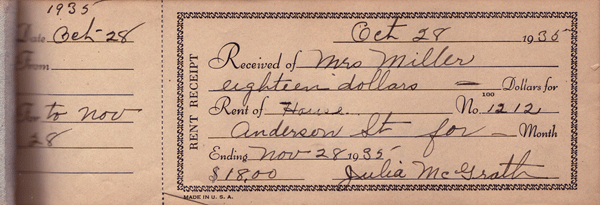 1935
Date Oct 28
From
For to Nov
28
RENT RECEIPT
Oct 28 1935
Received of Mrs Miller
eighteen dollars — Dollars for
100
Rent of House No. 1212
Anderson St for — Month
Ending Nov 28 1935
$18.00 Julia McGrath
MADE IN U. S. A.